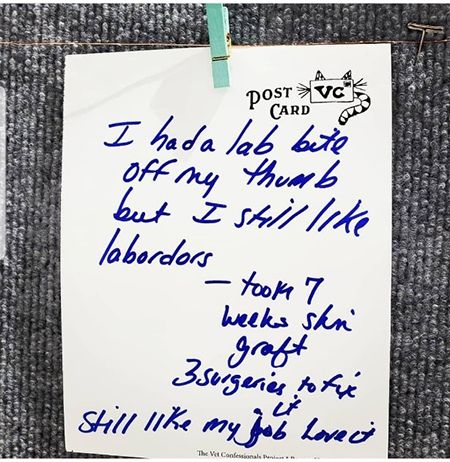 POST CARD VC
I had a lab bite
off my thumb
but I still like
labordors
— took 7
weeks skin
graft
3 surgeries to fix
it
still like my job Love it
The Vet Confessionals Project